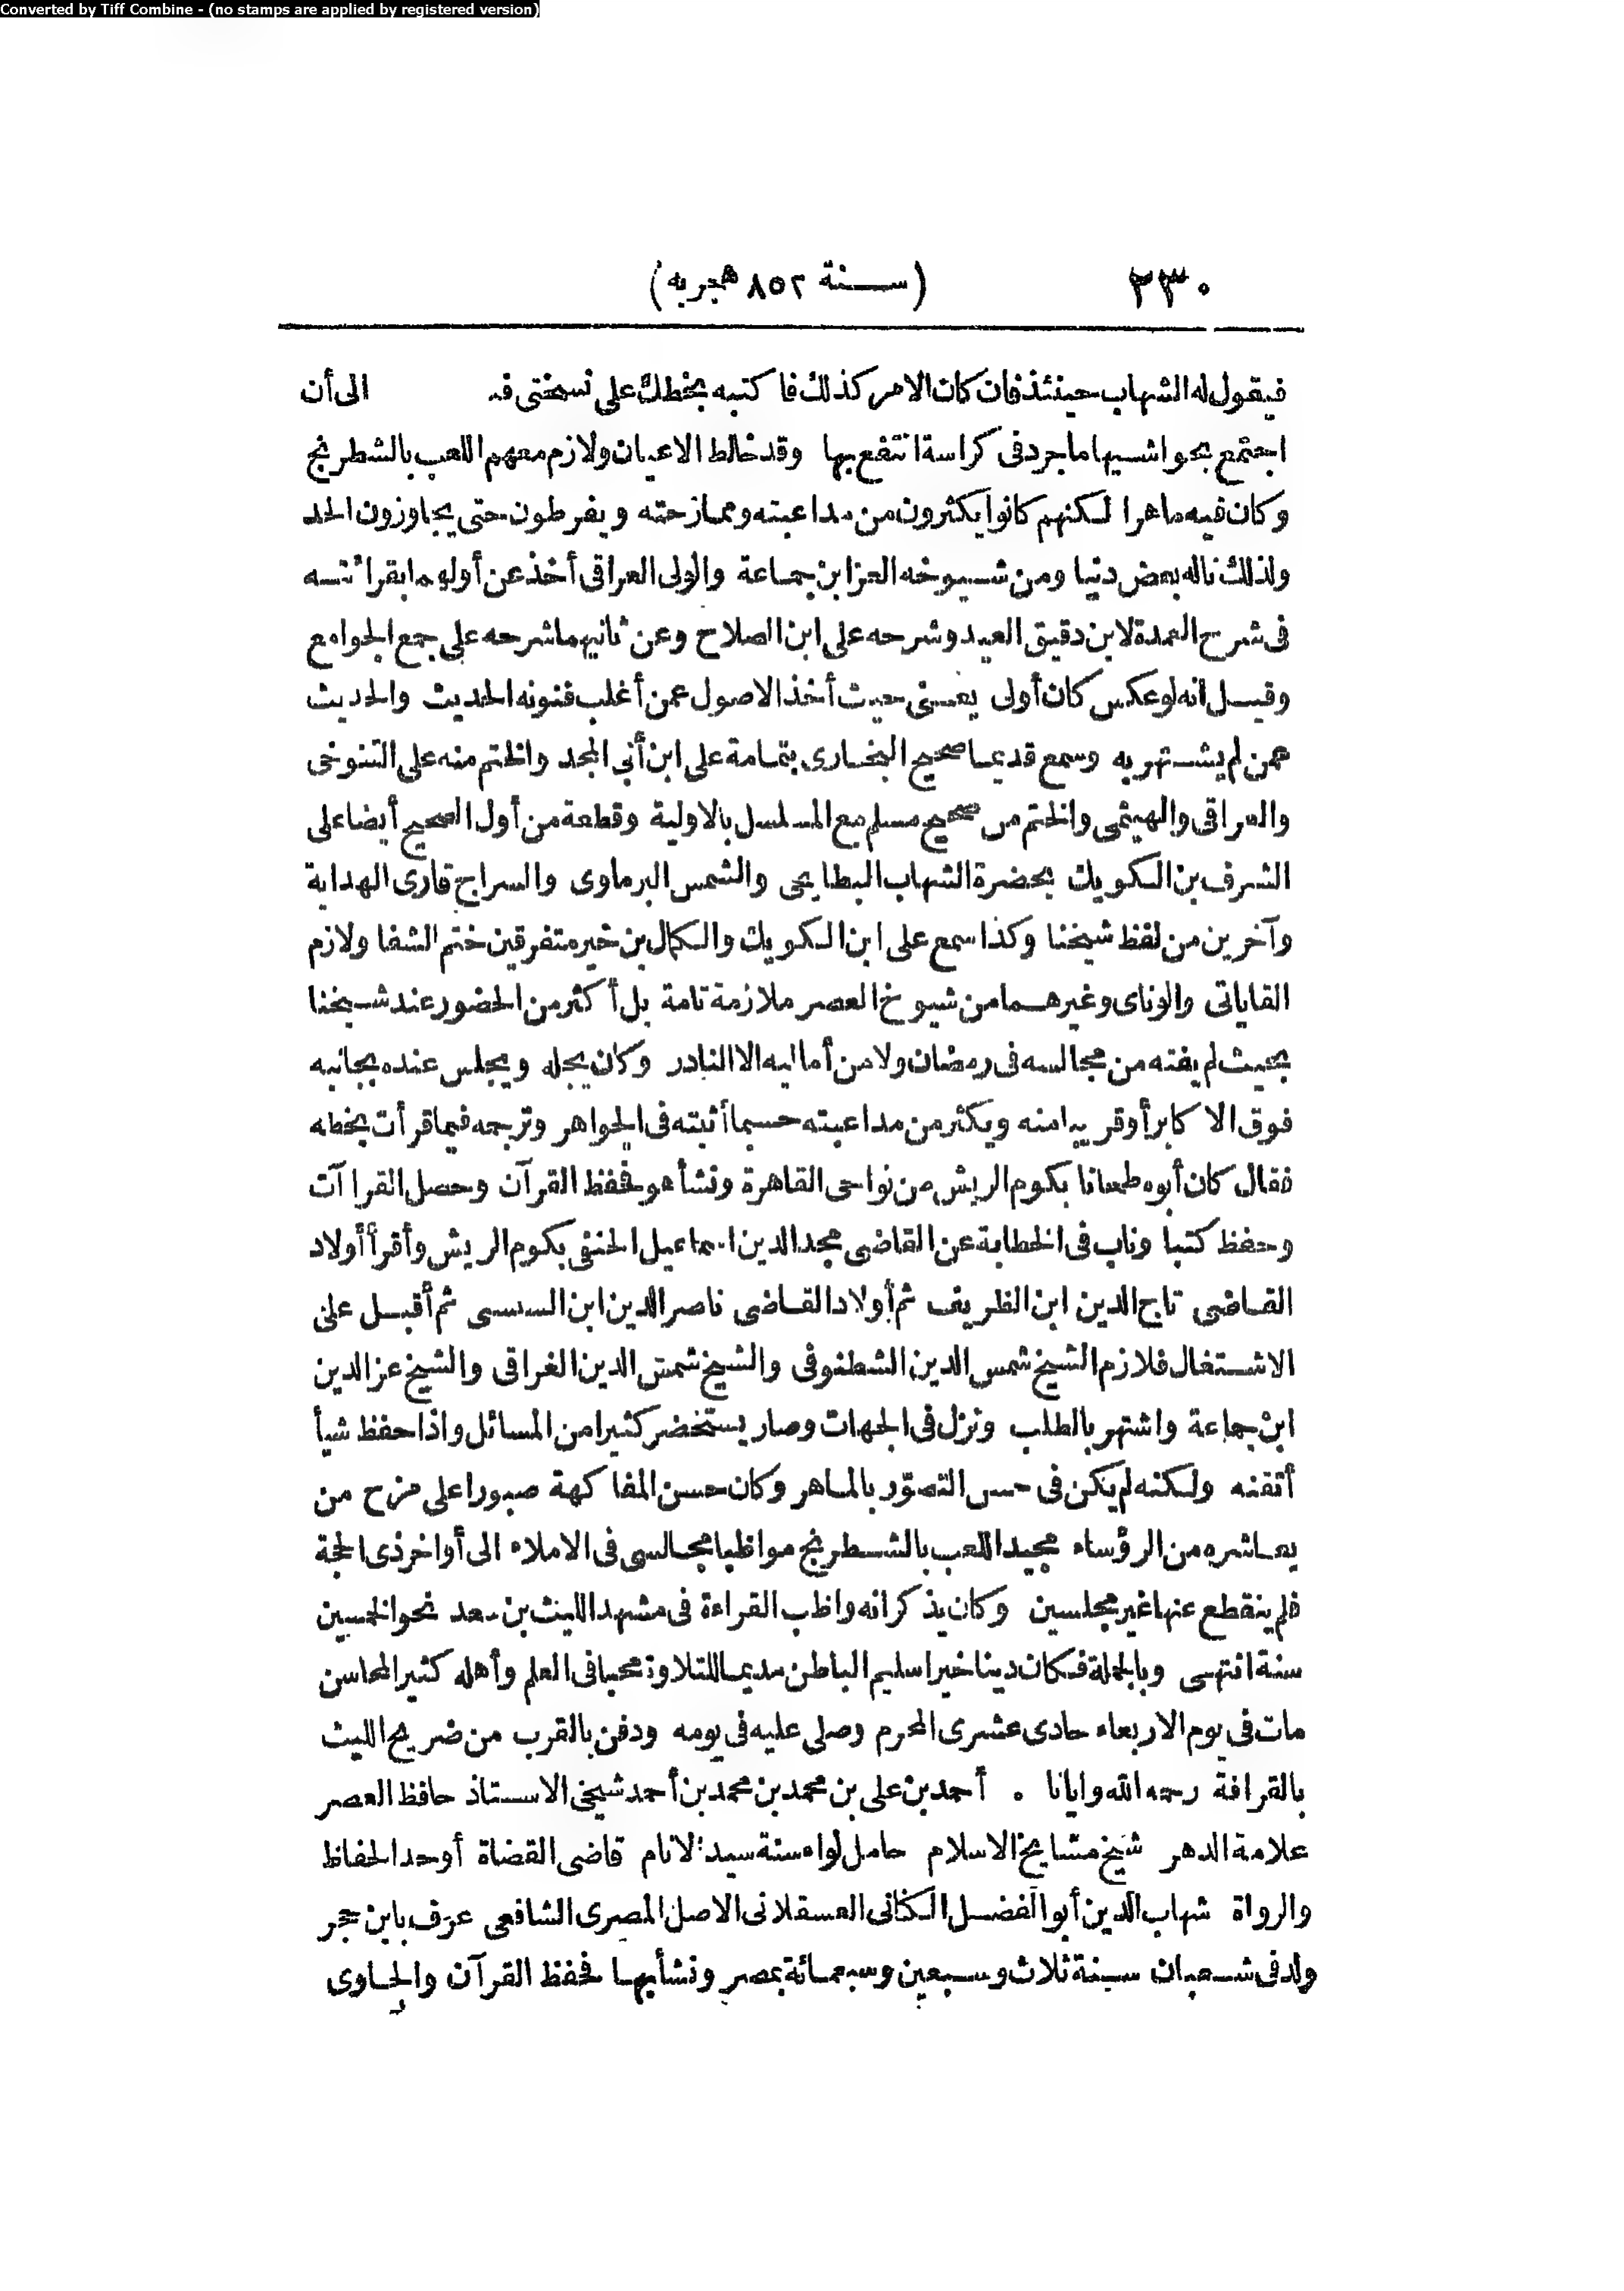 Converted by Tiff Combine - (no stamps are applied by registered version)
٢٣٠ (سنة ٨٥٢ هجريه)
فيقول له الشهاب حينئذ فان كان الامر كذلك فاكتبه بخطك على نسختى الى أن
اجتمع بحواشيها ما جرد فى كراسة انتفع بها وقد خالط الاعيان ولازم معهم اللعب بالشطرنج
وكان فيه ماهرا لكنهم كانوا يكثرون من مداعبته وممازحته ويفرطون حتى يجاوزون الحد
ولذلك ناله بعض دنيا ومن شيوخه العز ابن جماعة والولى العراقى أخذ عن أولهما بقراءته
فى شرح العمدة لابن دقيق العيد وشرحه على ابن الصلاح وعن ثانيهما شرحه على جمع الجوامع
وقيل انه لو عكس كان أولى يعنى حيث أخذ الاصول عمن أغلب فنونه الحديث والحديث
عمن لم يشتهر به وسمع قديما صحيح البخارى بتمامة على ابن أبى المجد والختم منه على التنوخى
والعراقى والهيثمى والختم من صحيح مسلم مع المسلسل بالاولية وقطعة من أول الصحيح أيضا على
الشرف بن الكويك بحضرة الشهاب البطايحى والشمس البرماوى والسراج قارى الهداية
وآخرين من لفظ شيخنا وكذا سمع على ابن الكويك والكمال بن خير متفرقين ختم الشفا ولازم
القاياتى والوناى وغيرهما من شيوخ العصر ملازمة تامة بل أكثر من الحضور عند شيخنا
بحيث لم يفته من مجالسه فى رمضان ولا من أماليه الا النادر وكان يجله ويجلس عنده بجانبه
فوق الاكابر أو قريبا منه ويكثر من مداعبته حسبما أثبته فى الجواهر وترجمه فيما قرأت بخطه
فقال كان أبوه طعانا بكوم الريش من نواحى القاهرة ونشأ هو فحفظ القرآن وحصل القراآت
وحفظ كتبا وناب فى الخطابة عن القاضى مجد الدين اسماعيل الحنفى بكوم الريش وأقرأ أولاد
القاضى تاج الدين ابن الظريف ثم أولاد القاضى ناصر الدين ابن السنسى ثم أقبل على
الاشتغال فلازم الشيخ شمس الدين الشطنوفى والشيخ شمس الدين الغراقى والشيخ عز الدين
ابن جماعة واشتهر بالطلب ونزل فى الجهات وصار يستحضر كثيرا من المسائل واذا حفظ شيأ
أتقنه ولكنه لم يكن فى حسن التصوّر بالماهر وكان حسن المفاكهة صبورا على مزح من
يعاشره من الرؤساء مجيد اللعب بالشطرنج مواظبا مجالسى فى الاملاء الى أواخر ذى الحجة
فلم ينقطع عنها غير مجلسين وكان يذكر انه واظب القراءة فى مشهد الليث بن سعد نحو الخمسين
سنة انتهى وبالجملة فكان دينا خيرا سليم الباطن مديما للتلاوة محبا فى العلم وأهله كثير المحاسن
مات فى يوم الاربعاء حادى عشرى المحرم وصلى عليه فى يومه ودفن بالقرب من ضريح الليث
بالقرافة رحمه الله وايانا . أحمد بن على بن محمد بن محمد بن أحمد شيخى الاستاذ حافظ العصر
علامة الدهر شيخ مشايخ الاسلام حامل لواء سنة سيد الانام قاضى القضاة أوحد الحفاظ
والرواة شهاب الدين أبو الفضل الكنانى العسقلانى الاصل المصرى الشافعى عرف بابن حجر
ولد فى شعبان سنة ثلاث وسبعين وسبعمائة بمصر ونشأ بها فحفظ القرآن والحاوى